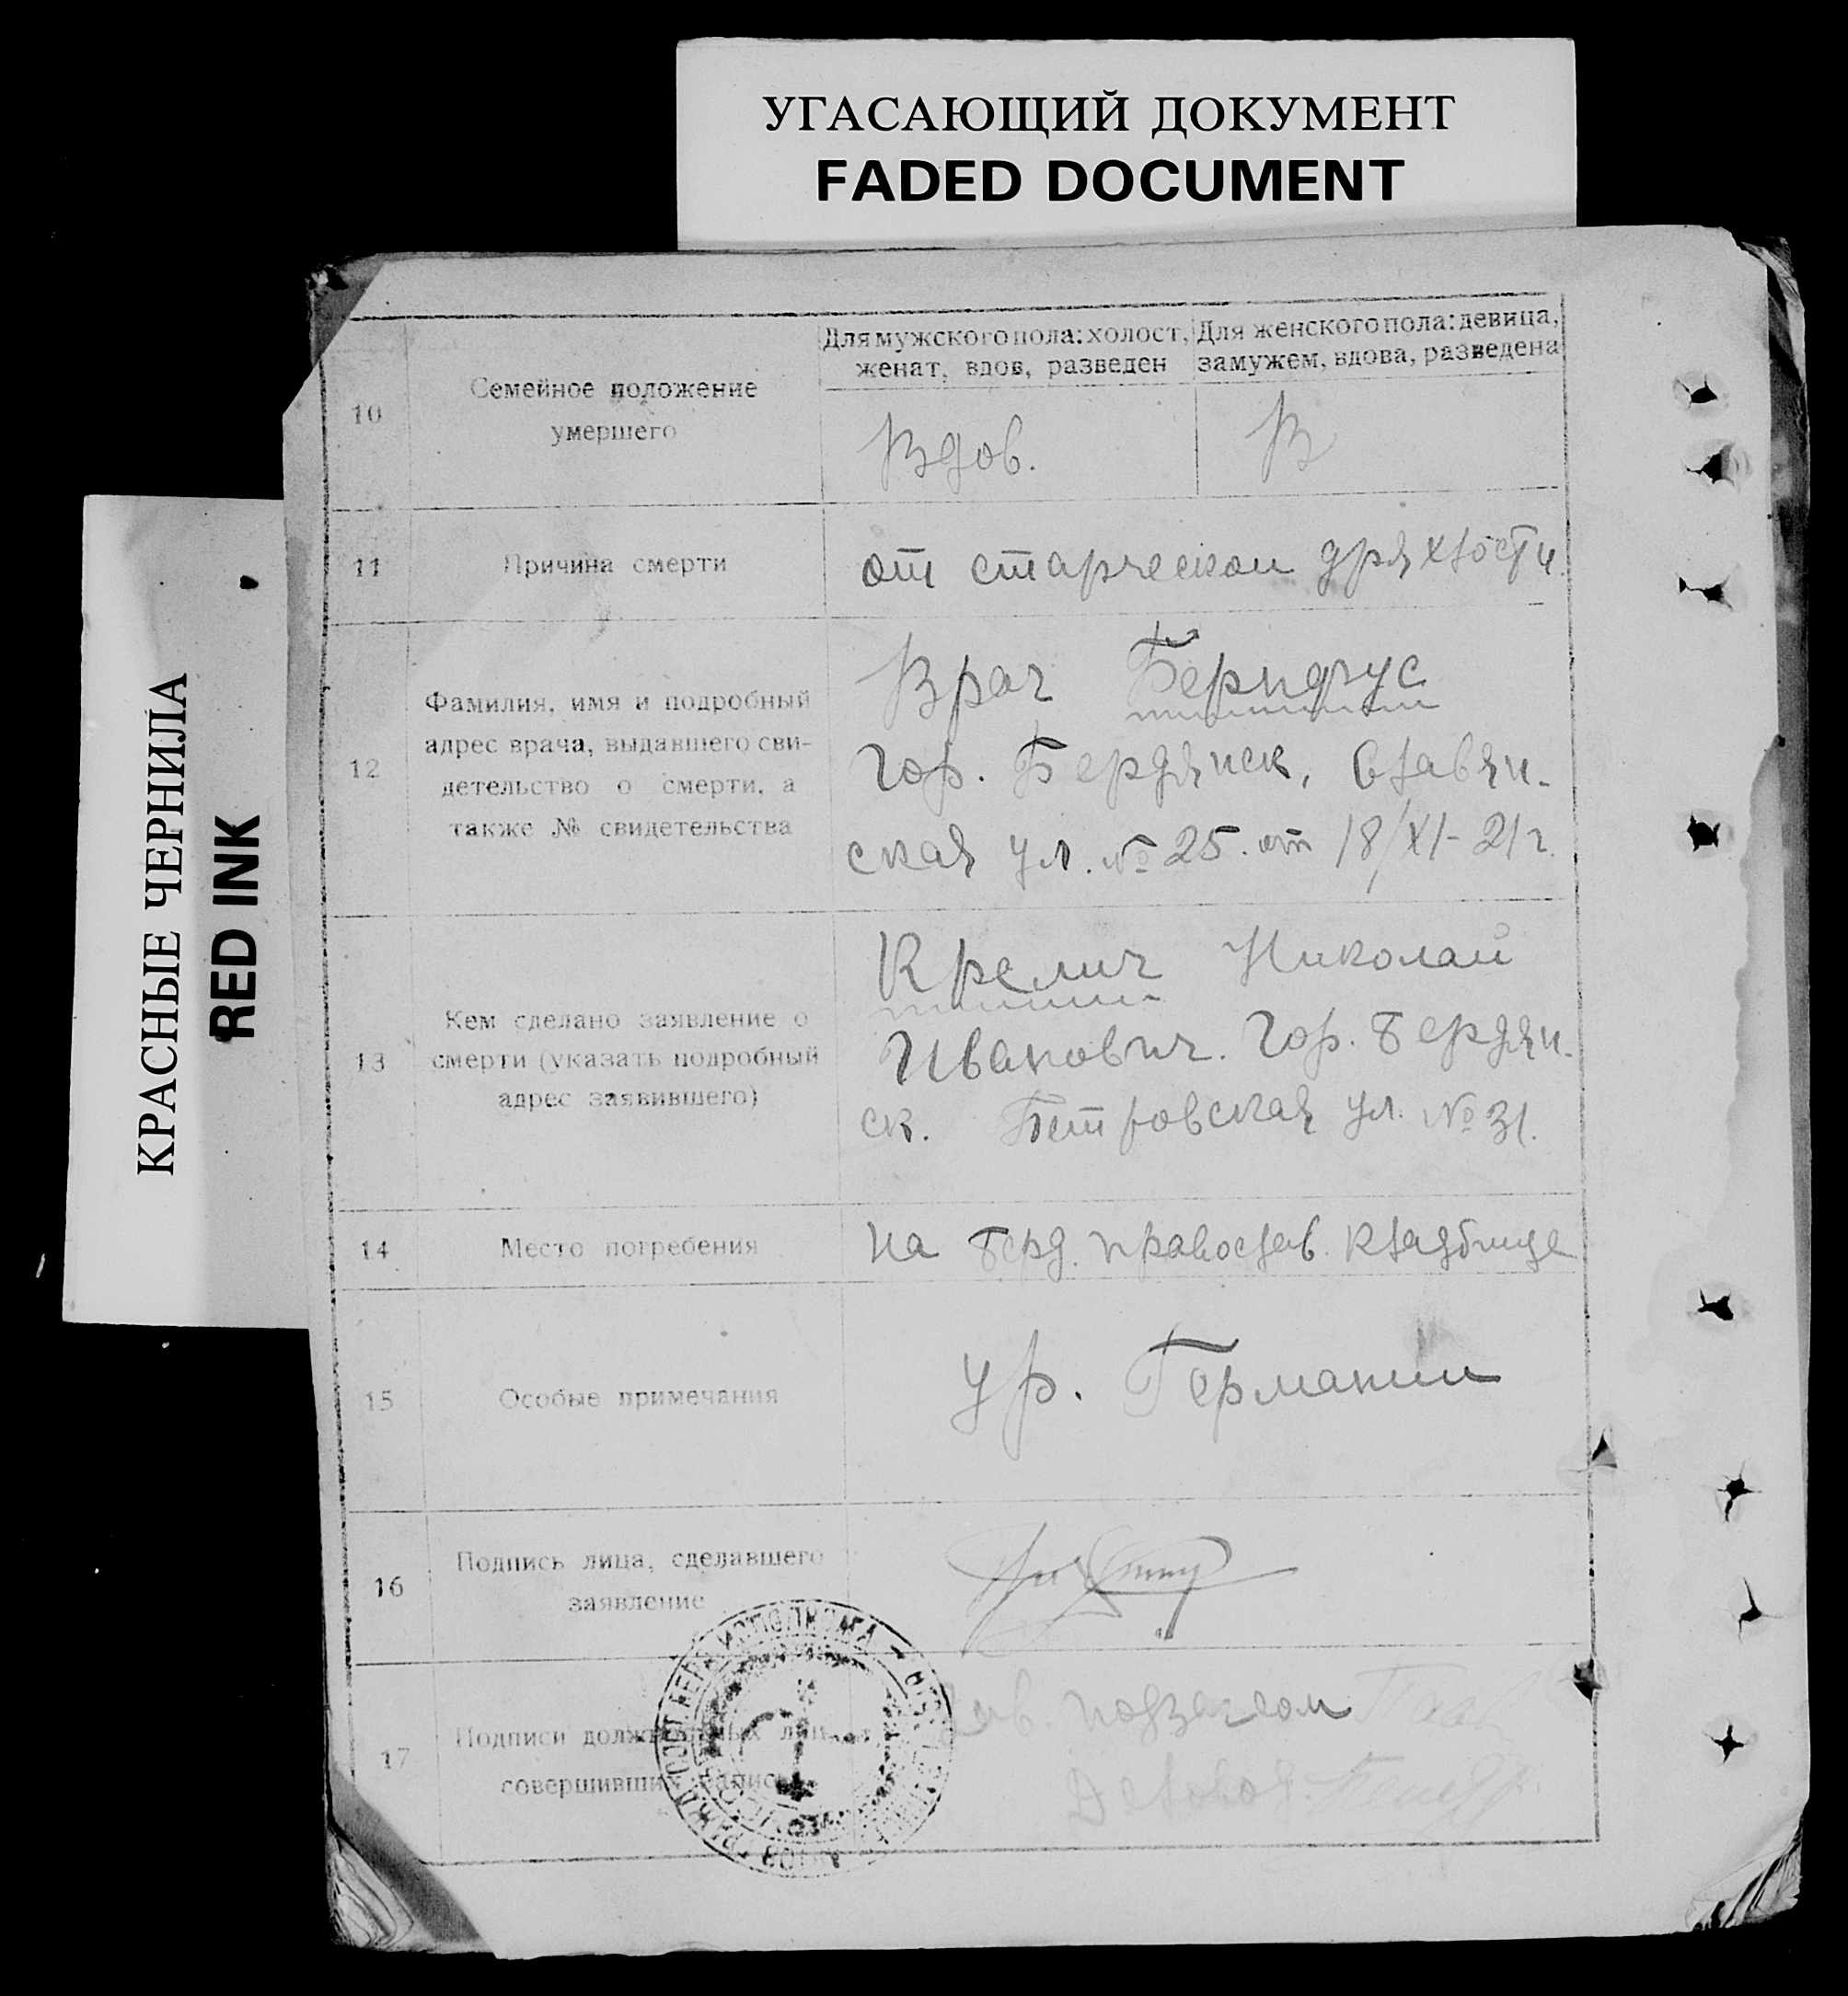 УГАСАЮЩИЙ ДОКУМЕНТ
FADED DOCUMENT
КРАСНЫЕ ЧЕРНИЛА
RED INK
10
Семейное положение
умершего
Для мужского пола: холост,
женат, вдов, разведен
Для женского пола: девица,
замужем, вдова, разведена
Вдов.
В
11
Причина смерти
от старческой дряхлости.
12
Фамилия, имя и подробный
адрес врача, выдавшего сви-
детельство о смерти, а
также № свидетельства
Врач
Гор. Бердянск, Славян-
ская ул. № 25. от 18/XI-21г.
13
Кем сделано заявление о
смерти (указать подробный
адрес заявившего)
Крелич Николай
Иванович. Гор. Бердян-
ск. Петровская ул. № 31.
14
Место погребения
на Берд. православ. кладбище
15
Особые примечания
ур. Германии
16
Подпись лица, сделавшего
заявление
17
Подписи должностных лиц,
совершивших запись
Зав. подзагсом